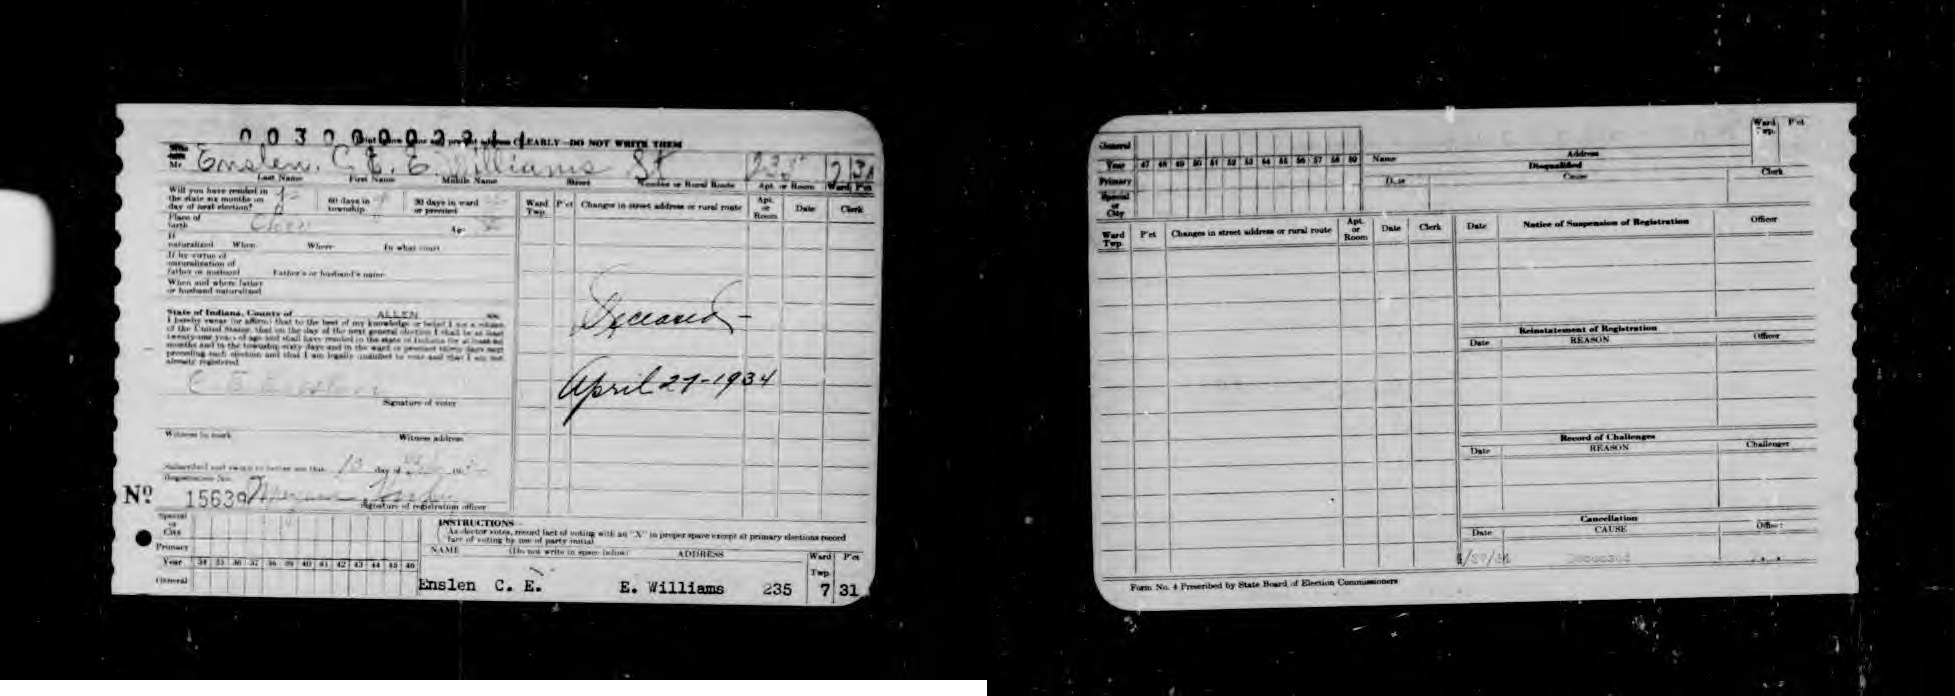 Print your name and present address CLEARLY—DO NOT WRITE THEM
Mr. Enslen, C. E. E. Williams St 235 7 31
Last Name First Name Middle Name Street Number or Rural Route Apt. or Room Ward P'ct
Will you have resided in the state six months on day of next election? 60 days in township 30 days in ward or precinct
Place of birth Age
If naturalized When Where In what court
If by virtue of naturalization of father or husband Father's or husband's name
When and where father or husband naturalized
State of Indiana, County of ALLEN
I hereby swear (or affirm) that to the best of my knowledge or belief I am a citizen
of the United States, that on the day of the next general election I shall be at least
twenty-one years of age and shall have resided in the state of Indiana for at least six
months and in the township sixty days and in the ward or precinct thirty days next
preceding such election and that I am legally qualified to vote and that I am not
already registered.
C E Enslen
Signature of voter
Witness to mark Witness address
Subscribed and sworn to before me this 10 day of 193
Registration No.
No 15639
Signature of registration officer
Ward Twp. P'ct Changes in street address or rural route Apt. or Room Date Clerk
Deceased-
April 27-1934
Special or City
Primary
Year 34 35 36 37 38 39 40 41 42 43 44 45 46
General
INSTRUCTIONS
As elector votes, record fact of voting with an "X" in proper space except at primary elections record
fact of voting by use of party initial
NAME (Do not write in space below) ADDRESS Ward Twp. P'ct
Enslen C. E. E. Williams 235 7 31
General
Year 47 48 49 50 51 52 53 54 55 56 57 58 59
Primary
Special or City
Name Address Ward Twp. P'ct
Disqualified
Date Cause Clerk
Ward Twp. P'ct Changes in street address or rural route Apt. or Room Date Clerk
Date Notice of Suspension of Registration Officer
Reinstatement of Registration
Date REASON Officer
Record of Challenges
Date REASON Challenger
Cancellation
Date CAUSE Officer
4/27/34 Deceased
Form No. 4 Prescribed by State Board of Election Commissioners